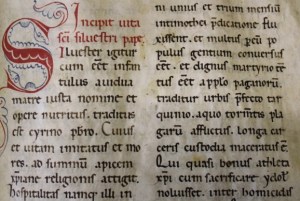 Incipit vita
sci silvestri pape
Silvester igitur
cum eēt infan
tulus a vidua
matre iusta nomine et
opere nutritus. traditus
est cyrino pbro. Cuius
et vitam imitatus et mo
res. ad summū apicem
xpiane religionis attigit.
Hospitalitas namq; illi in
ni unius et trium mensiū
intimothei p̄dicationeflu
xissent. et multus p̄eū po
pulus gentium conversus
eēt. et dignus martyrio cēt
tus eēt apł'o paganorū.
traditur urbis p̄fecto tar
quinio. a quo tormtis plagarū
afflictus. longa car
ceris custodia maceratus ē.
Qui quasi bonus athleta
xpi cum sacrificare ydol'
noluisset. inter homicidas